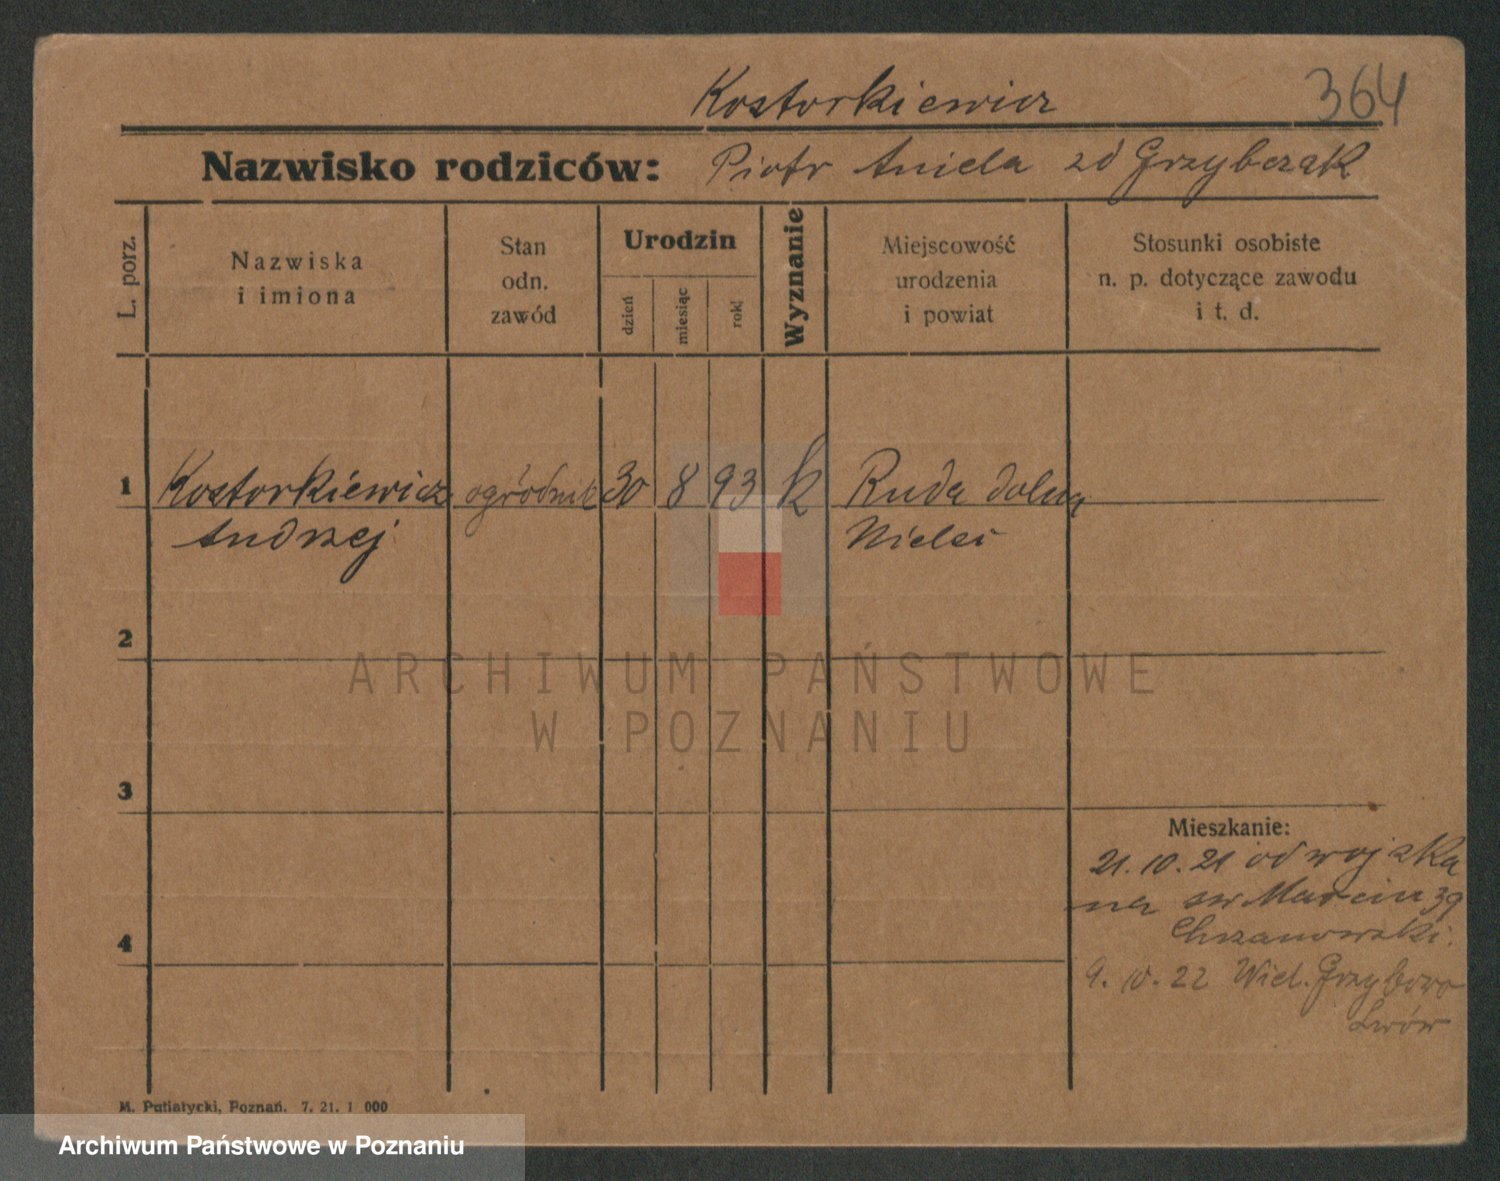 Kostorkiewicz 364
Nazwisko rodziców: Piotr Aniela zd Grzybczak
L. porz.
Nazwiska
i imiona
Stan
odn.
zawód
Urodzin
dzień
miesiąc
rok
Wyznanie
Miejscowość
urodzenia
i powiat
Stosunki osobiste
n. p. dotyczące zawodu
i t. d.
1 Kostorkiewicz ogrodnik 30 8 93 k Ruda dolna
Andrzej
2
ARCHIWUM PAŃSTWOWE
W POZNANIU
3
Mieszkanie:
21. 10. 21 od wojska
na sw Marcin 39
Chrzanowski.
4
9. 10. 22 Wiel. Grzybowo
Lwów
M. Putiatycki, Poznań. 7. 21. 1 000
Archiwum Państwowe w Poznaniu